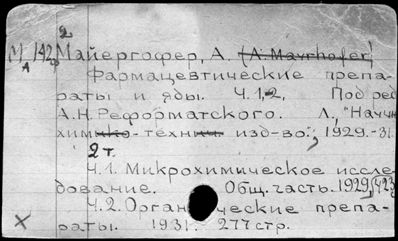 2
М 142 Майергофер, А. (A. Mayrhofer)
А
Фармацевтические препа-
раты и яды. Ч.1,2, Под ред
А.Н. Реформатского. Л., "Научн
химико-технич изд-во", 1929.-31.
2 т.
Ч.1. Микрохимическое иссле-
дование. Общ. часть. 1929, 423
Ч.2. Органические препа-
раты. 1931. 277 стр.